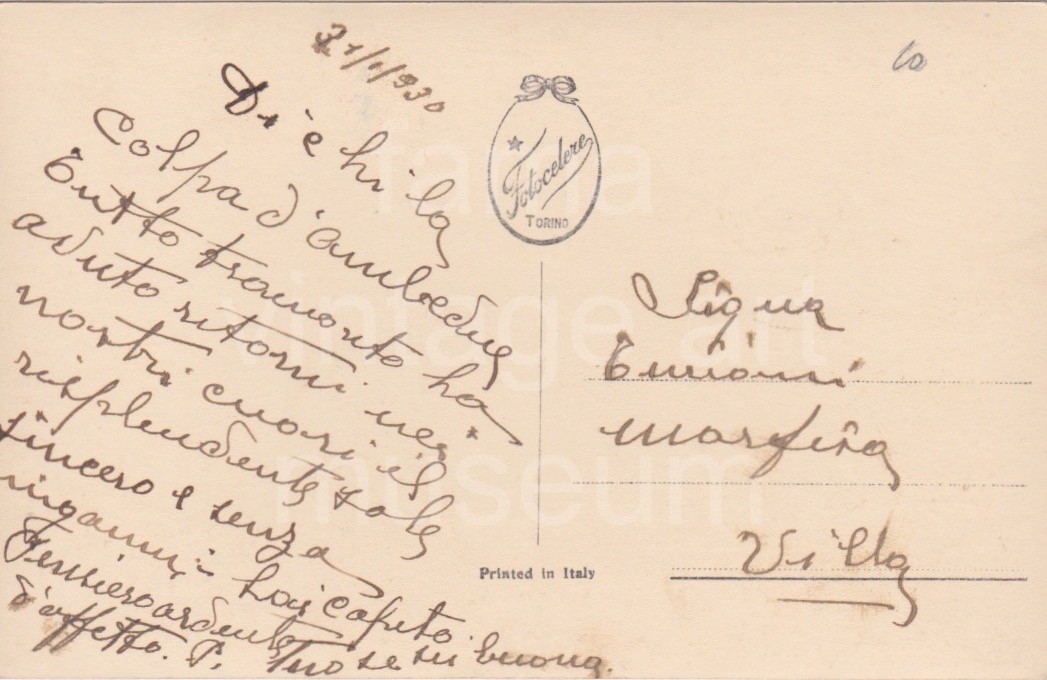 21/1/930
Di è hi la
Colpa d'ambedue
Tutto tramonto ha
aduto ritorni nei
nostri cuori il
risplendente sole
sincero e senza
inganni: hai capito.
Pensiero ardente
d'affetto. P. Tuo se sei buona.
Fotocelere
TORINO
Signa
Marfisa
Villa
Printed in Italy
fama
vintage art
museum